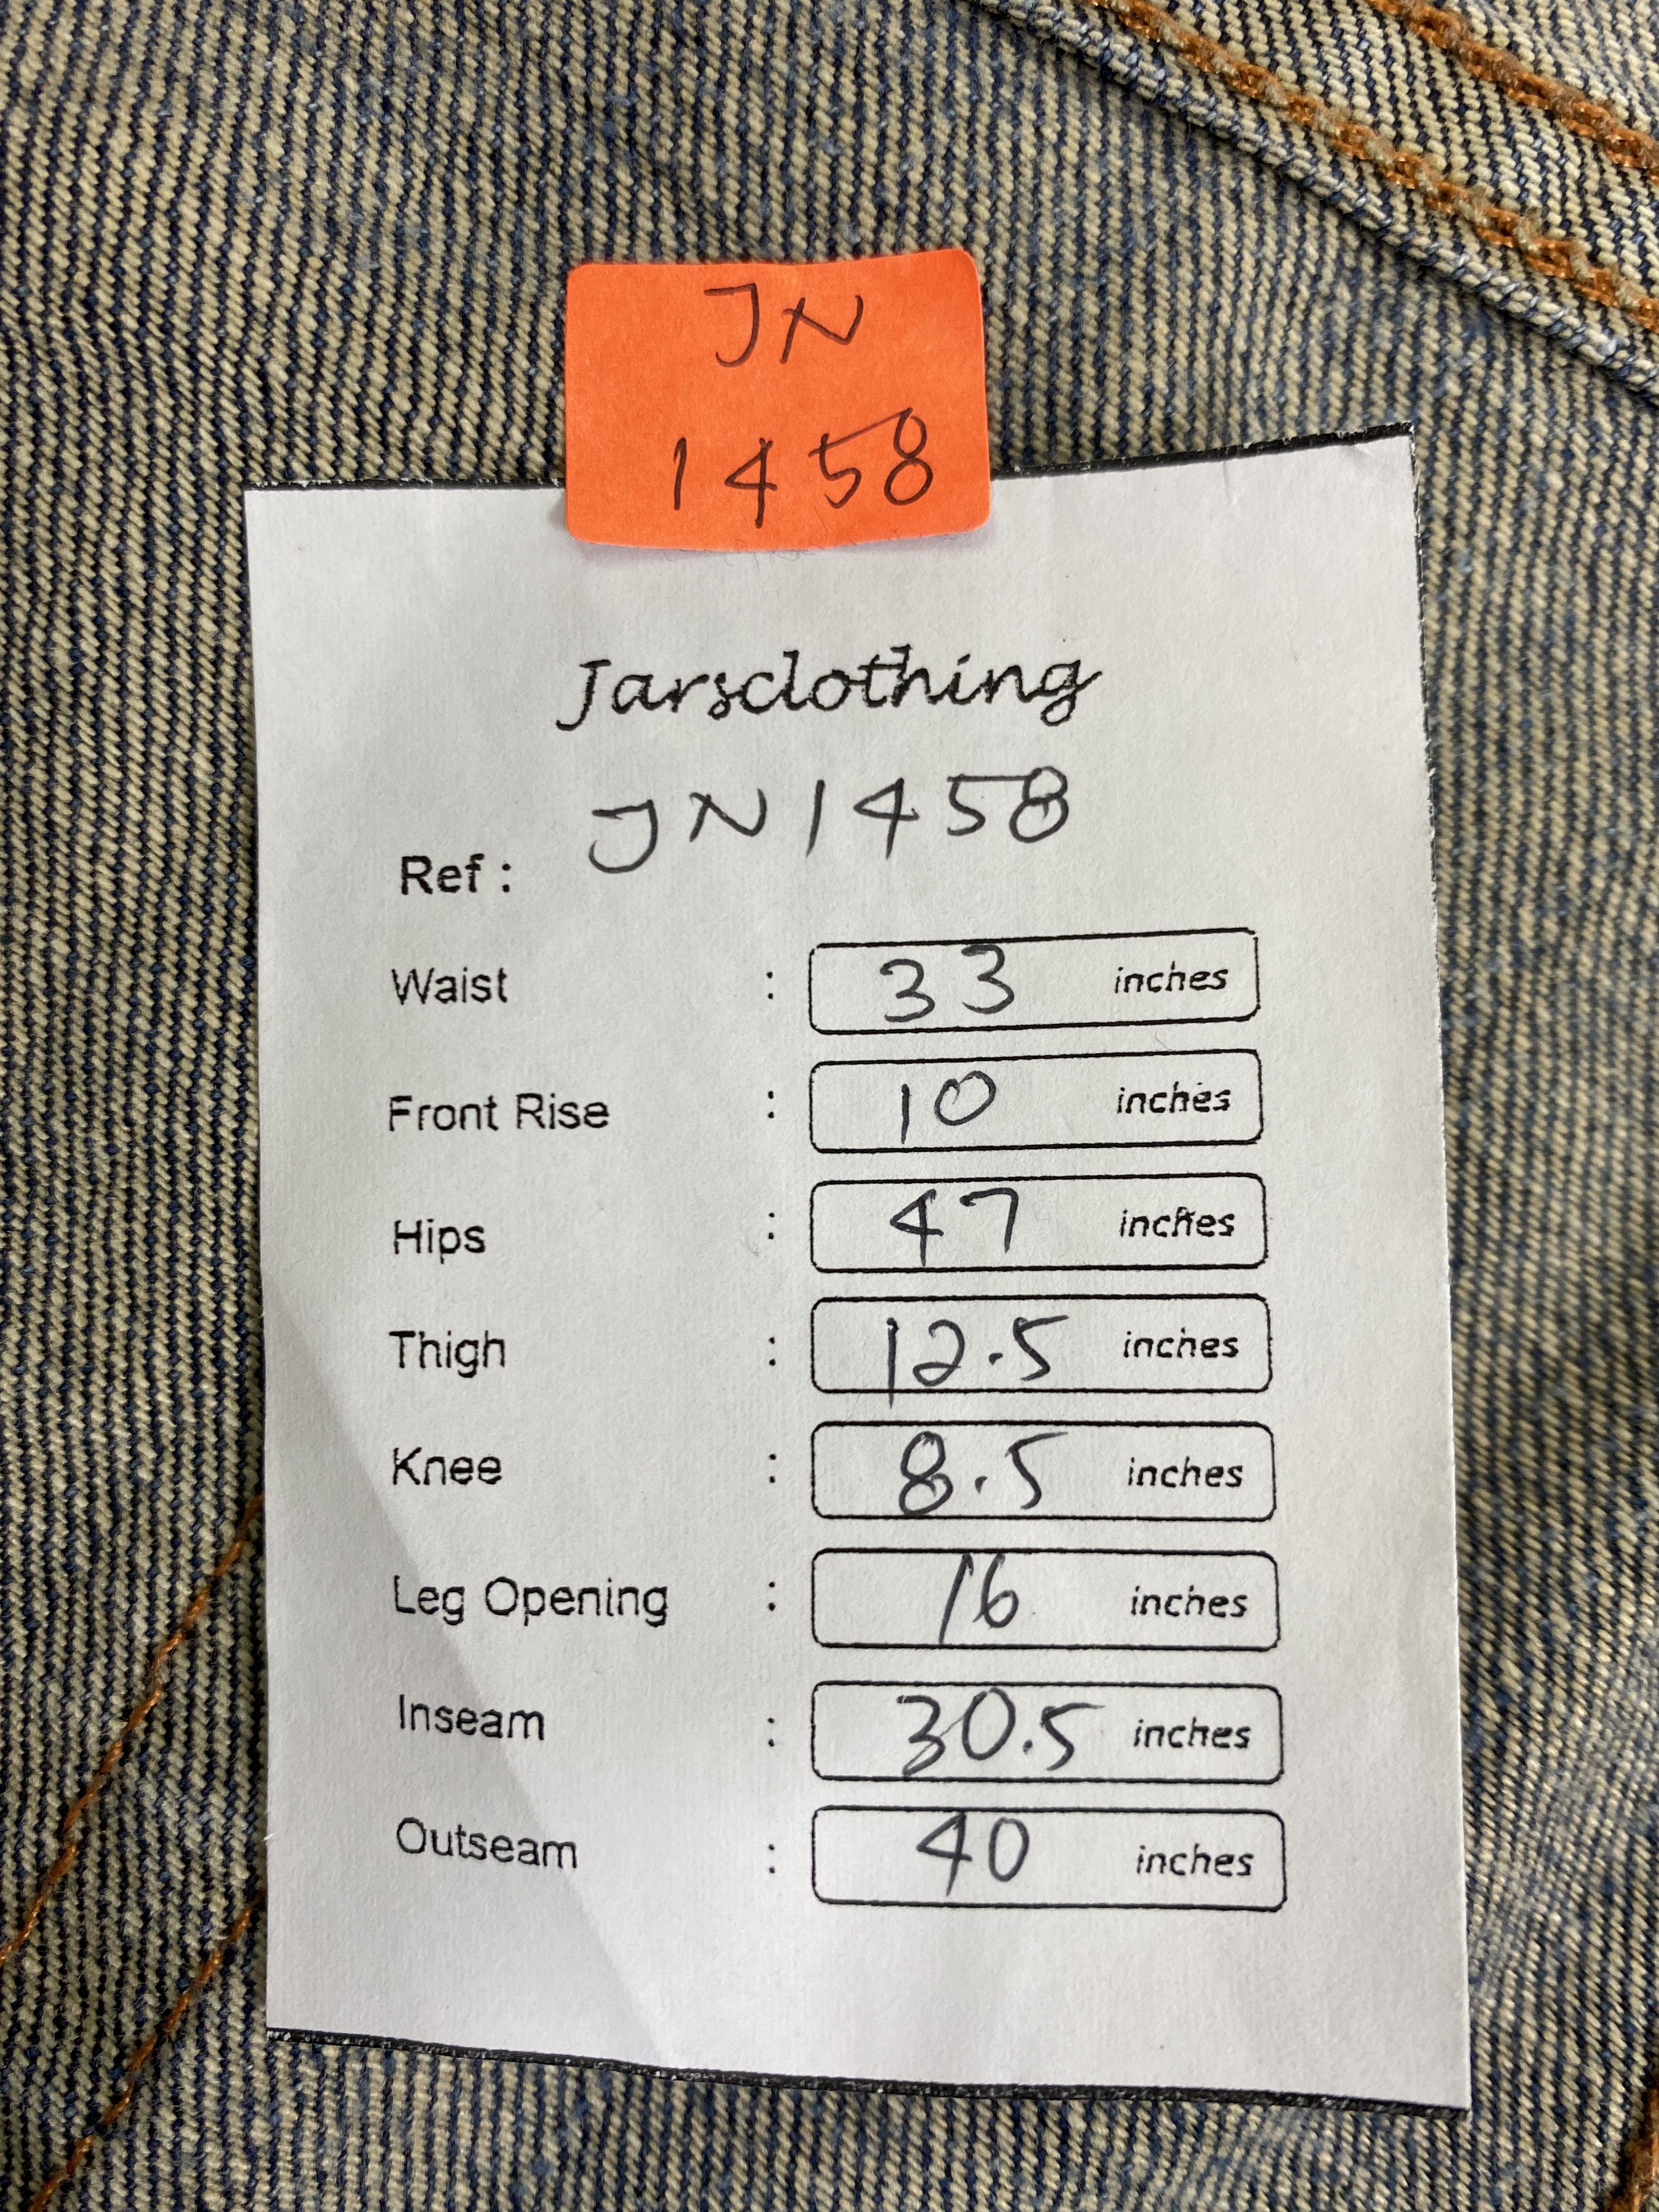 JN
1458
Jarsclothing
JN1458
Ref :
Waist : 33 inches
Front Rise : 10 inches
Hips : 47 inches
Thigh : 12.5 inches
Knee : 8.5 inches
Leg Opening : 16 inches
Inseam : 30.5 inches
Outseam : 40 inches